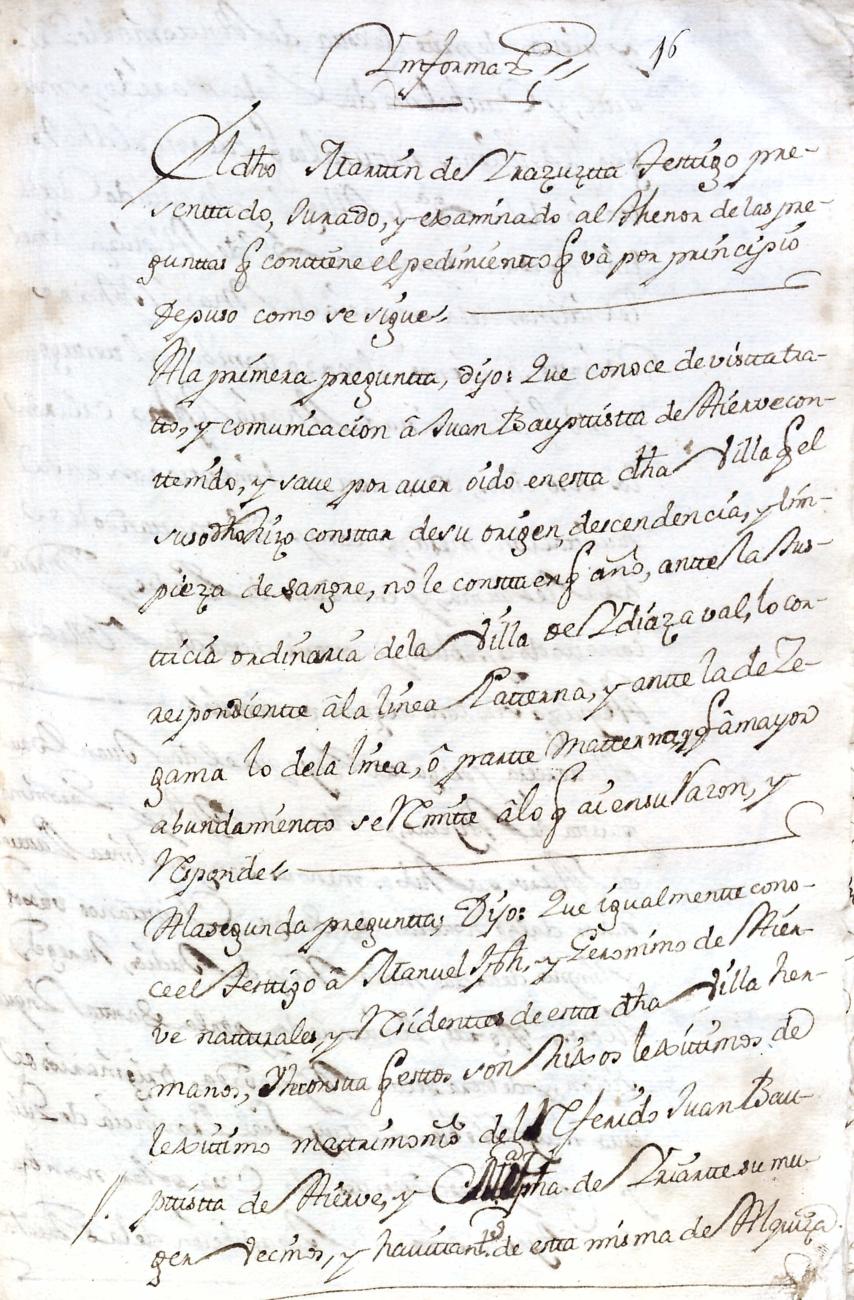 Informaz.on
16
El dho Martin de Yrazuzta testigo pre-
senttado, Jurado, y examinado al thenor de las pre-
guntas q conttiene el pedimientto q và por principio
depuso como se sigue.
A la primera pregunta, dijo: Que conoce de vistta tra-
tto, y comunicacion â Juan Bapttistta de Hierve con-
ttenido, y save por aver oido en estta dha Villa q el
susodho hizo consttar de su origen, descendencia, y lim-
pieza de sangre, no le constta en q año, antte la Jus-
tticia ordinaria de la Villa de Ydiazaval, lo cor-
respondientte â la linea Patterna, y antte la de Ze-
gama lo de la linea, ô partte Matterna, y q â mayor
abundamientto se Remitte â lo q ai en su Razon, y
Responde.
A la segunda pregunta, Dijo: Que igualmentte cono-
ce el testtigo â Manuel Jph, y Geronimo de Hier-
ve natturales, y Residenttes de estta dha Villa her-
manos, y le constta q esttos son hixos lexittimos de
lexittimo mattrimonio del Referido Juan Bau-
pttistta de Hierve, y de Yriartte su mu-
ger vecinos, y havittan.tes de estta misma de Alquiza.